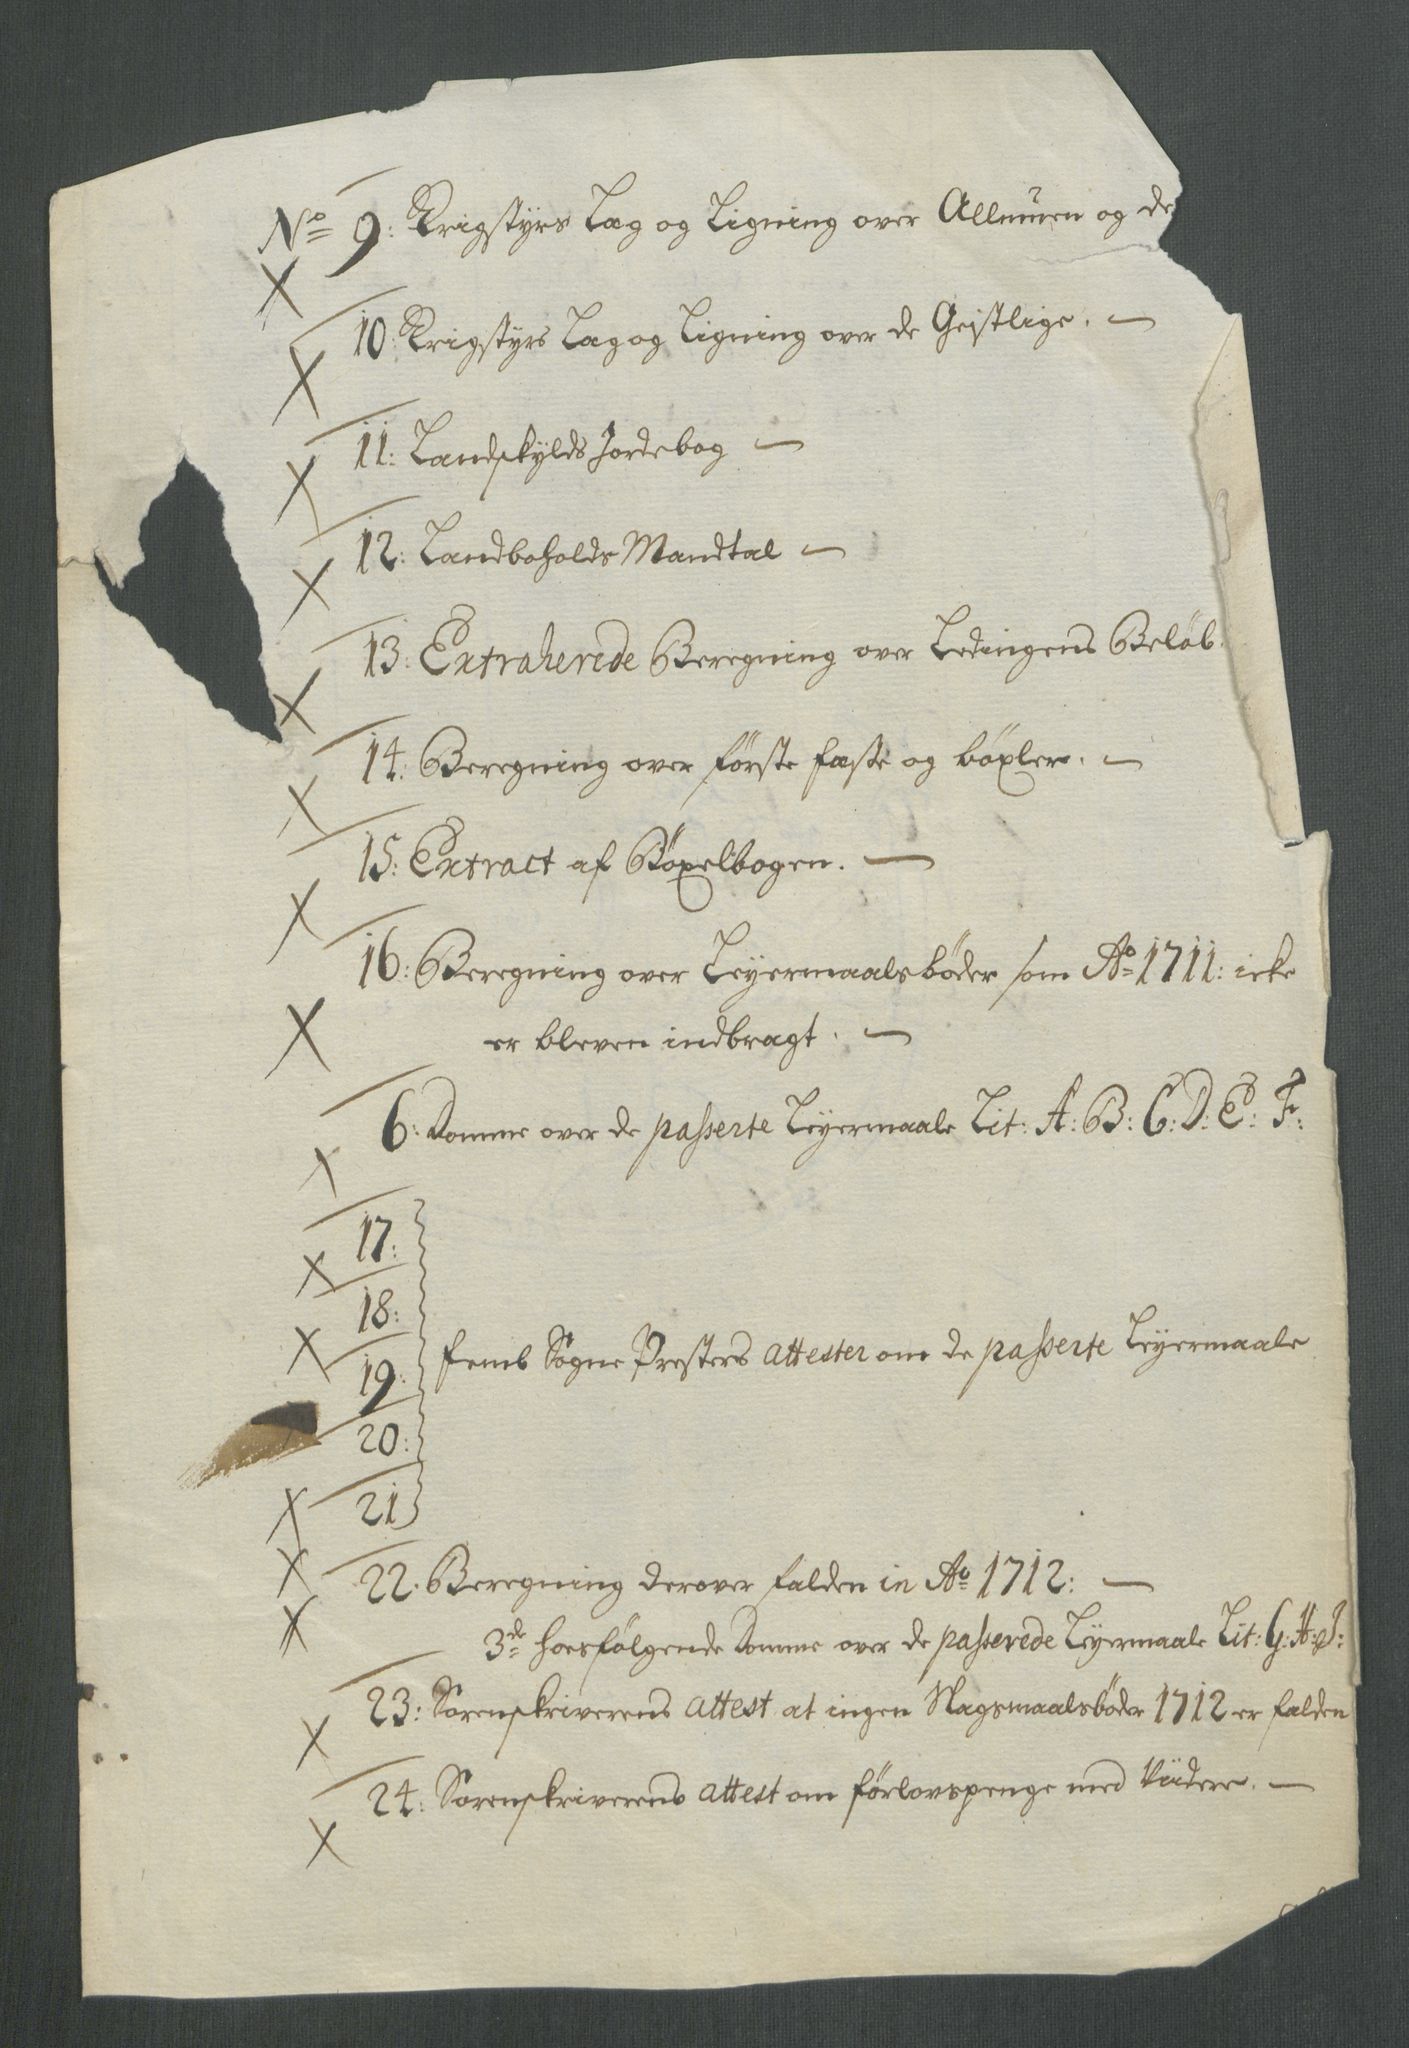 No 9: Krigstyrs Læg og Ligning over Allmuen og de
10: Krigstyrs Læg og Ligning over de Geistlige. —
11: Landskylds Jordebog —
12: Landboholds Mandtal —
13: Extraherede Beregning over Ledingens Beløb.
14: Beregning over første fæste og böxler. —
15: Extract af Böxelbogen. —
16: Beregning over Leyermaalsbøder som Ao 1711: icke
er bleven indbragt. —
6: Domme over de passerte Leyermaale Lit: A: B: C: D: E: F:
17:
18:
19: femb Sogne Presters attester om de passerte Leyermaale
20:
21
22. Beregning derover falden in Ao 1712: —
3de hosfølgende Domme over de passerede Leyermaale Lit: G: H: J:
23: Sorenskriverens attest at ingen Slagsmaalsbøder 1712 er falden
24: Sorenskriverens attest om förlovspenge med Viidere. —